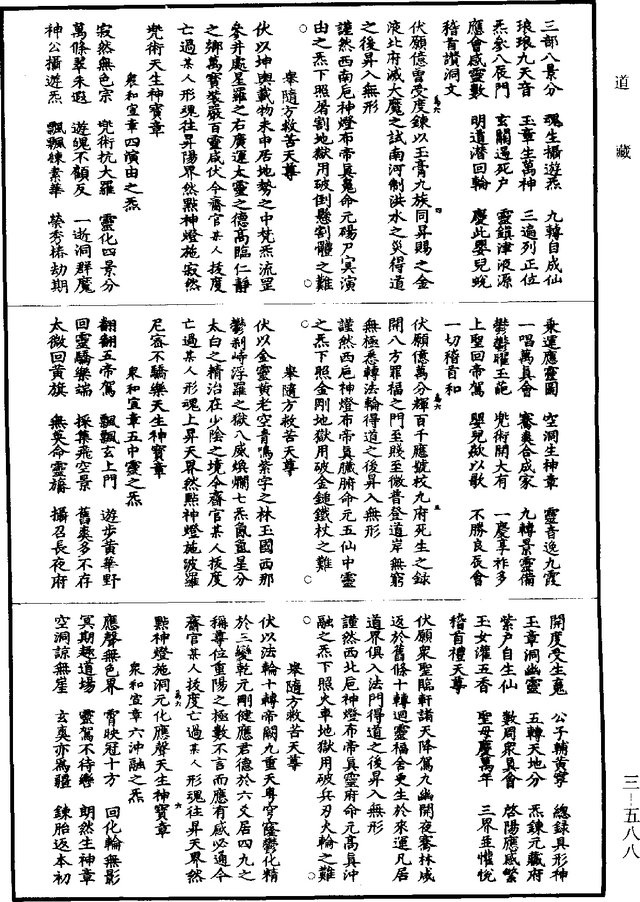 道藏
三部八景分　魂生攝遊炁　九轉自成仙
琅琅九天音　玉章生萬神　三遍列正位
炁參八辰門　玄關過死戶　靈鎮津液源
應會感靈數　明道潛回輪　慶此嬰兒蛻
稽首讚洞文
伏願億曾受度鍊以玉膏九族同昇賜之金
液北府滅大魔之試南河制洪水之災得道
之後昇入無形
謹然西南巵神燈布帝真冤命元碭尸冥演
由之炁下照屠割地獄用破倒懸割體之難
舉隨方救苦天尊
伏以坤輿載物未申居地勢之中梵炁流罡
參井處星羅之右廣運太靈之德高臨仁靜
之鄉萬寶裝嚴百靈咸伏今齋官某人拔度
亡過某人形魂往昇陽界然點神燈施寂然
兜術天生神寶章
衆和宣章四演由之炁
寂然無色宗　兜術抗大羅　靈化四景分
萬條翠朱遐　遊魄不顧反　一逝洞群魔
神公攝遊炁　飄飄練素華　榮秀椿劫期
乘運應靈圖　空洞生神章　靈音逸九霞
一唱萬真會　騫爽合成家　九轉景靈備
鬱鬱曜玉葩　兜術開大有　一慶享祚多
上聖回帝駕　嬰兒歘以歌　不勝良晨會
一切稽首和
伏願億萬分輝百千應號校九府死生之録
開八方罪福之門至賤至微普登道岸無窮
無極悉轉法輪得道之後昇入無形
謹然西巵神燈布帝真臟腑命元五仙中靈
之炁下照金剛地獄用破金鎚鐵杖之難
舉隨方救苦天尊
伏以金靈黃老空青鳴紫字之林玉國西那
鬱剎峙浮羅之嶽八威煥爛七炁氤氳星分
太白之精治在少陰之境今齋官某人拔度
亡過某人形魂上昇天界然點神燈施波羅
尼密不驕樂天生神寶章
衆和宣章五中靈之炁
翻翻五帝駕　飄飄玄上門　遊步黃華野
回靈驕樂端　採集飛空景　舊爽多不存
太微回黃旗　無英命靈旛　攝召長夜府
開度受生魂　公子輔黃寧　總録具形神
玉章洞幽靈　五轉天地分　炁鍊元藏府
紫戶自生仙　數周衆真會　啓陽應感繁
玉女灌五香　聖母慶萬年　三界並懽悅
稽首禮天尊
伏願衆聖臨軒諸天降駕九幽開夜騫林咸
返於舊條十轉迴靈福舍更生於來運凡居
道界俱入法門得道之後昇入無形
謹然西北巵神燈布帝真靈府命元高真沖
融之炁下照火車地獄用破兵刃火輪之難
舉隨方救苦天尊
伏以法輪十轉帝闕九重天尊穹窿鬱化精
於三變乾元剛健應君德於六爻居四九之
稱尊位重陽之極數不言而應有感必通今
齋官某人拔度亡過某人形魂往昇天界然
點神燈施洞元化應聲天生神寶章
衆和宣章六沖融之炁
應聲無色界　霄映冠十方　回化輪無影
冥期趣道場　靈駕不待轡　朗然生神章
空洞諒無崖　玄爽亦爲彊　鍊胎返本初
三一五八八